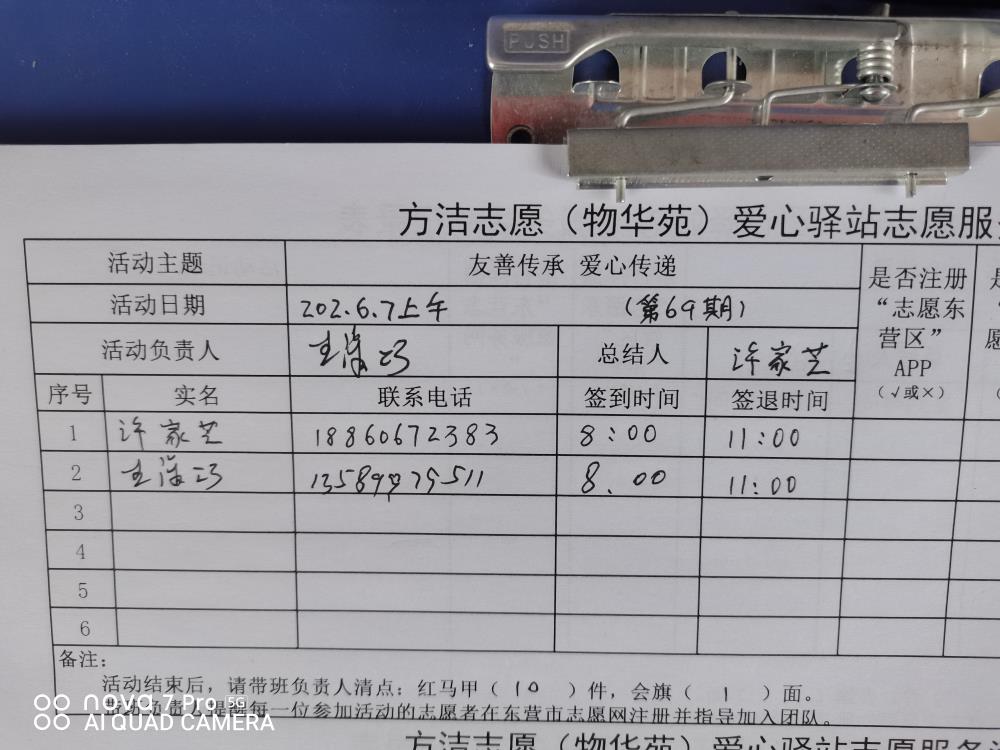 PUSH
方洁志愿（物华苑）爱心驿站志愿服
活动主题 友善传承 爱心传递 是否注册“志愿东营区”APP（√或×）
活动日期 202.6.7上午 （第69期）
活动负责人 总结人 许家芝
序号 实名 联系电话 签到时间 签退时间
1 许家芝 18860672383 8:00 11:00
2 8.00 11:00
3
4
5
6
备注：
活动结束后，请带班负责人清点：红马甲（10）件，会旗（1）面。
提醒每一位参加活动的志愿者在东营市志愿网注册并指导加入团队。
nova 7 Pro 5G
AI QUAD CAMERA
方洁志愿（物华苑）爱心驿站志愿服务